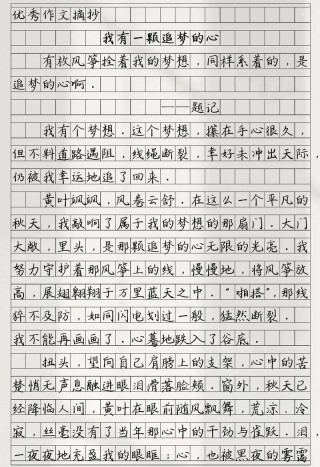 优秀作文摘抄
我有一颗追梦的心
有枚风筝拴着我的梦想，同样系着的，是
追梦的心啊．
——题记
我有个梦想．这个梦想，攥在手心很久，
但不料道路遇阻，线绳断裂，幸好未冲出天际，
仍被我幸运地追了回来．
黄叶飒飒，风卷云舒．在这么一个平凡的
秋天，我敲响了属于我的梦想的那扇门．大门
大敞，里头，是那颗追梦的心无限的光亮．我
努力守护着那风筝上的线．慢慢地，将风筝放
高，展翅翱翔于万里蓝天之中．“啪搭”，那线
猝不及防，如同闪电划过一般，猛然断裂．
我不能再画画了．心蓦地跌入了谷底．
扭头，望向自己肩膀上的支架，心中的苦
楚悄无声息融进眼泪滑落脸颊．窗外，秋天已
经降临人间，黄叶在眼前随风飘舞．荒凉、冷
寂，丝毫没有了当年那心中的干劲与雀跃．泪，
一夜夜地充盈我的眼眶；心，也被黑夜的雾霭